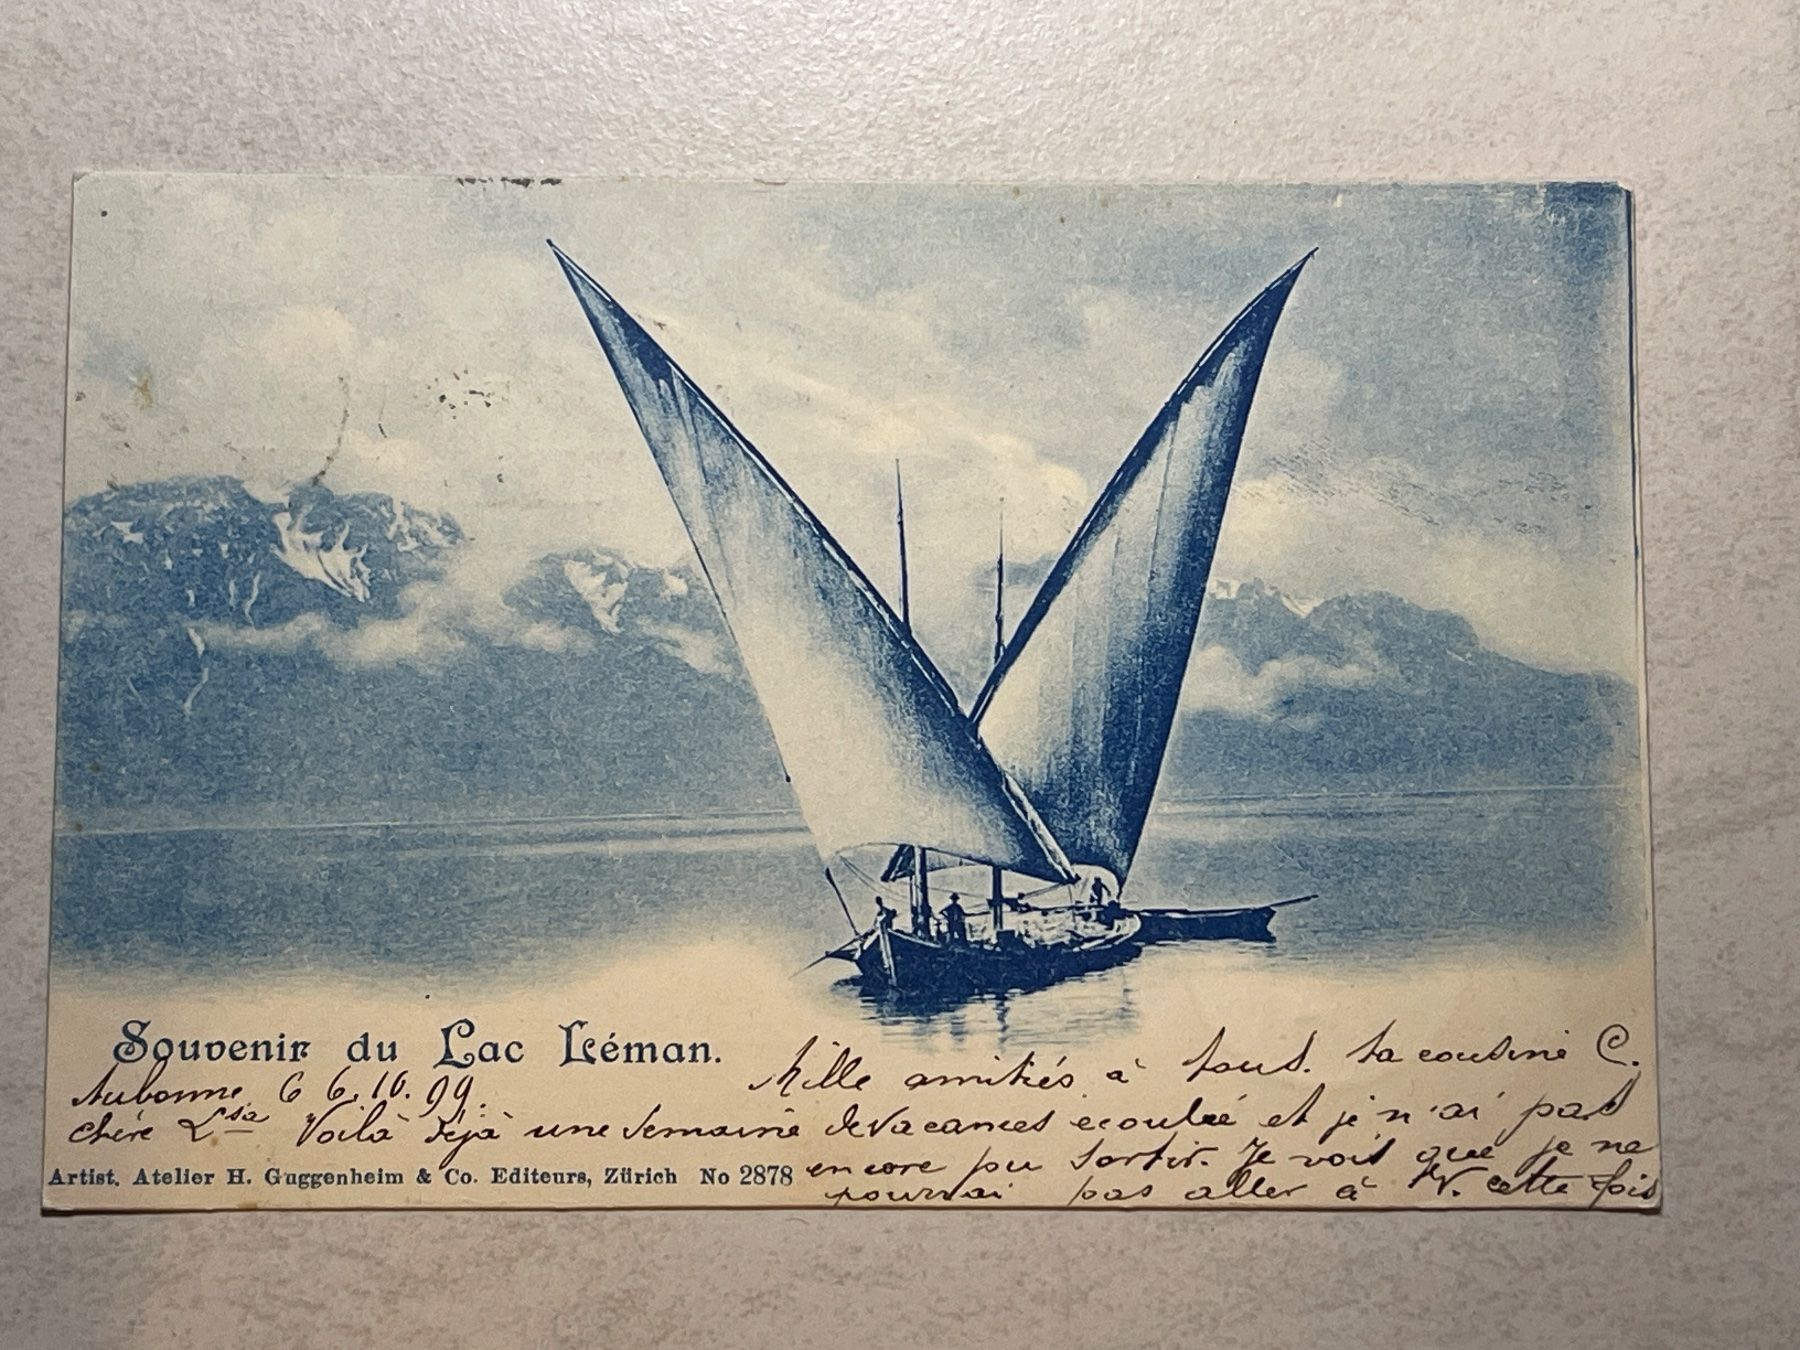 Souvenir du Lac Léman.
Mille amitiés à tous. Ta cousine C.
Aubonne 6 6.10.99.
Chère Lsa Voilà déjà une semaine de vacances écoulée et je n'ai pas
Artist. Atelier H. Guggenheim & Co. Editeurs, Zürich No 2878
encore pu sortir. Je vois que je ne
pourrai pas aller à V. cette fois